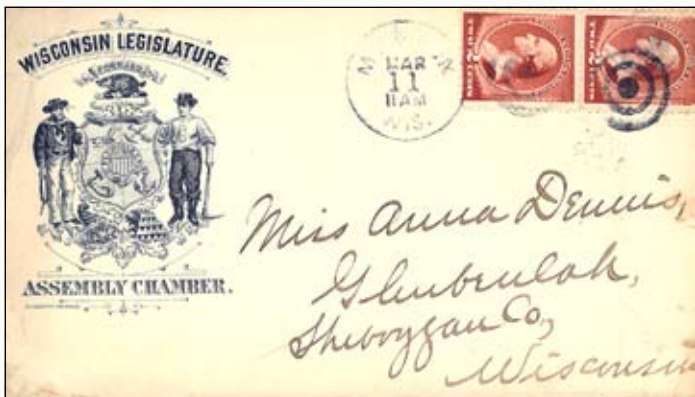 WISCONSIN LEGISLATURE.
FORWARD
ASSEMBLY CHAMBER.
MAR
11
11AM
WIS.
Miss Anna Dennis,
Glenbeulah,
Sheboygan Co,
Wisconsin